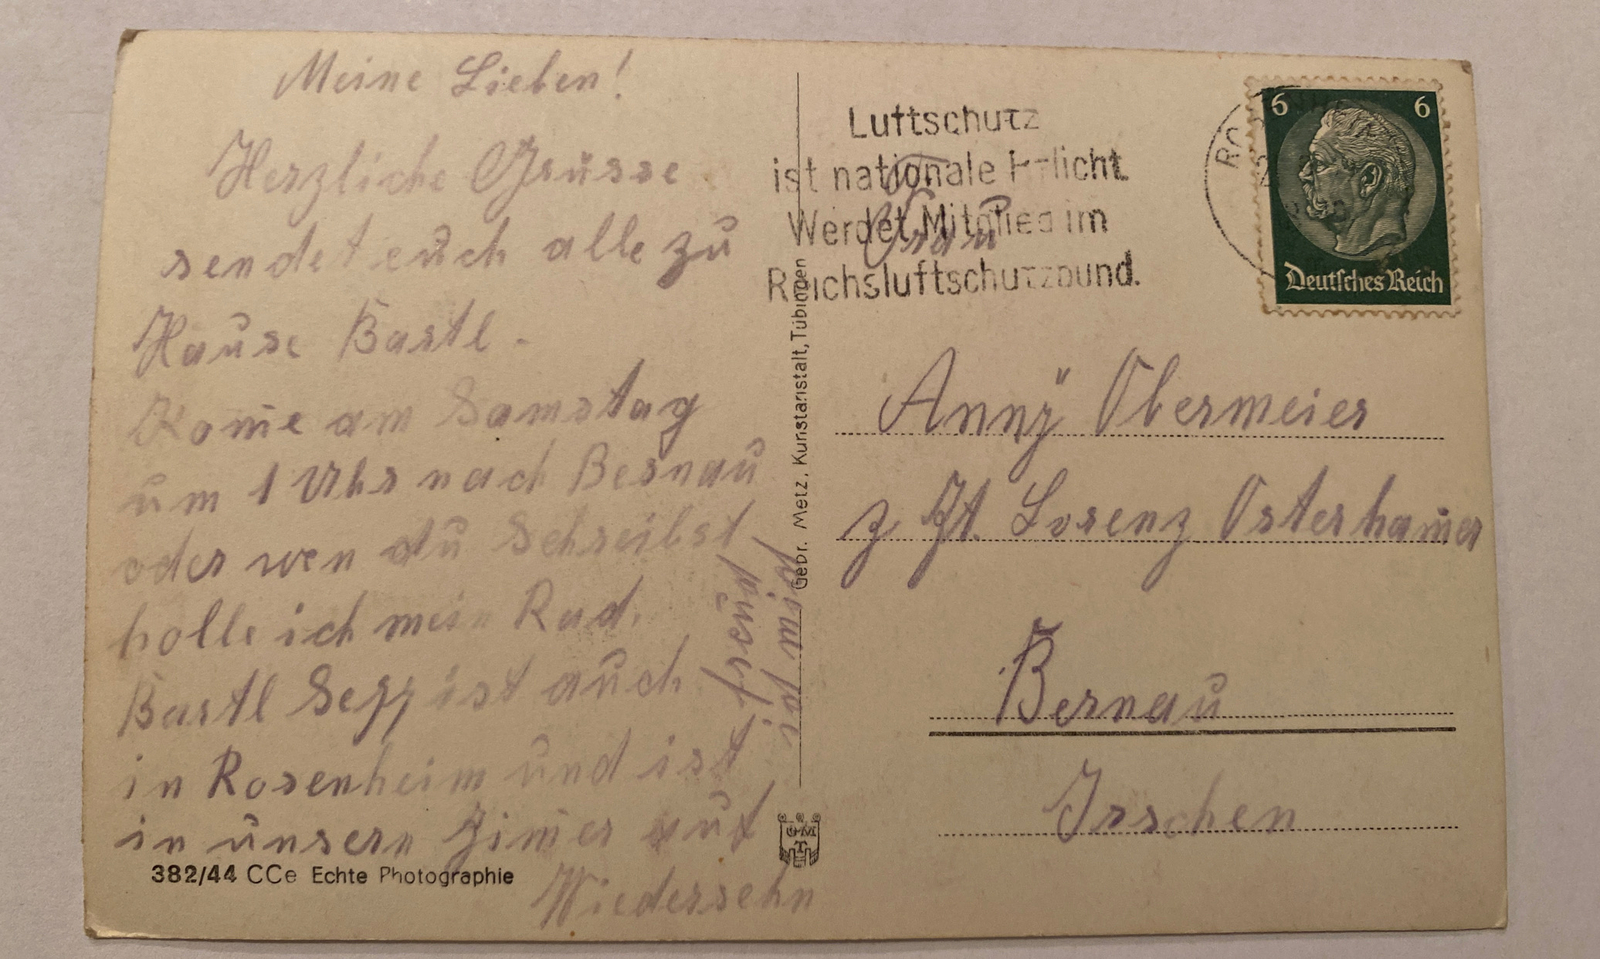 Meine Lieben!
Herzliche Grüsse
sendet euch alle zu
Hause Bartl.
Kom̅e am Samstag
um 1 Uhr nach Bernau
oder wen du Schreibst
holle ich mein Rad.
Bartl Sepp ist auch
in Rosenheim und ist
in unsern Zim̅er auf
Wiedersehn
freund
ich mich
382/44 CCe Echte Photographie
Gebr. Metz, Kunstanstalt, Tübingen
GMT
Luftschutz
ist nationale Pflicht.
Werdet Mitglied im
Reichsluftschutzbund.
6 6
Deutsches Reich
Frau
Annÿ Obermeier
z. Zt. Lorenz Osterham̅er
Bernau
Irschen